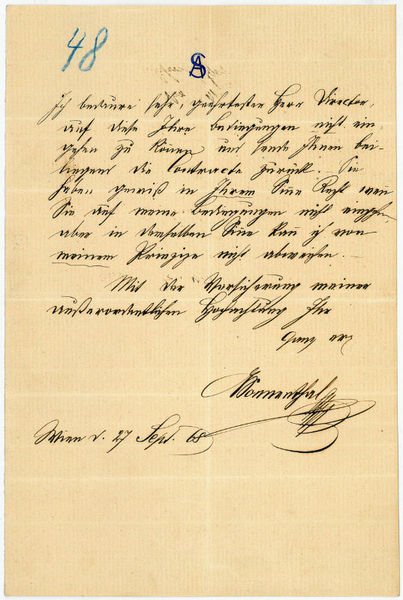 48
AS
Ich bedaure sehr, geehrtester Herr Director,
auf diese Ihre Bedingungen nicht ein-
gehen zu können und sende Ihnen bei-
liegend die Contracte zurück. Sie
haben gewiß in Ihrem Sinne Recht wenn
Sie auf meine Bedingungen nicht eingehen,
aber in demselben Sinne kann ich von
meinem Prinzipe nicht abweichen. —
Mit der Versicherung meiner
außerordentlichen Hochachtung Ihr
Ganz erg
ASonnenthal
Wien d. 27 Sept. 68